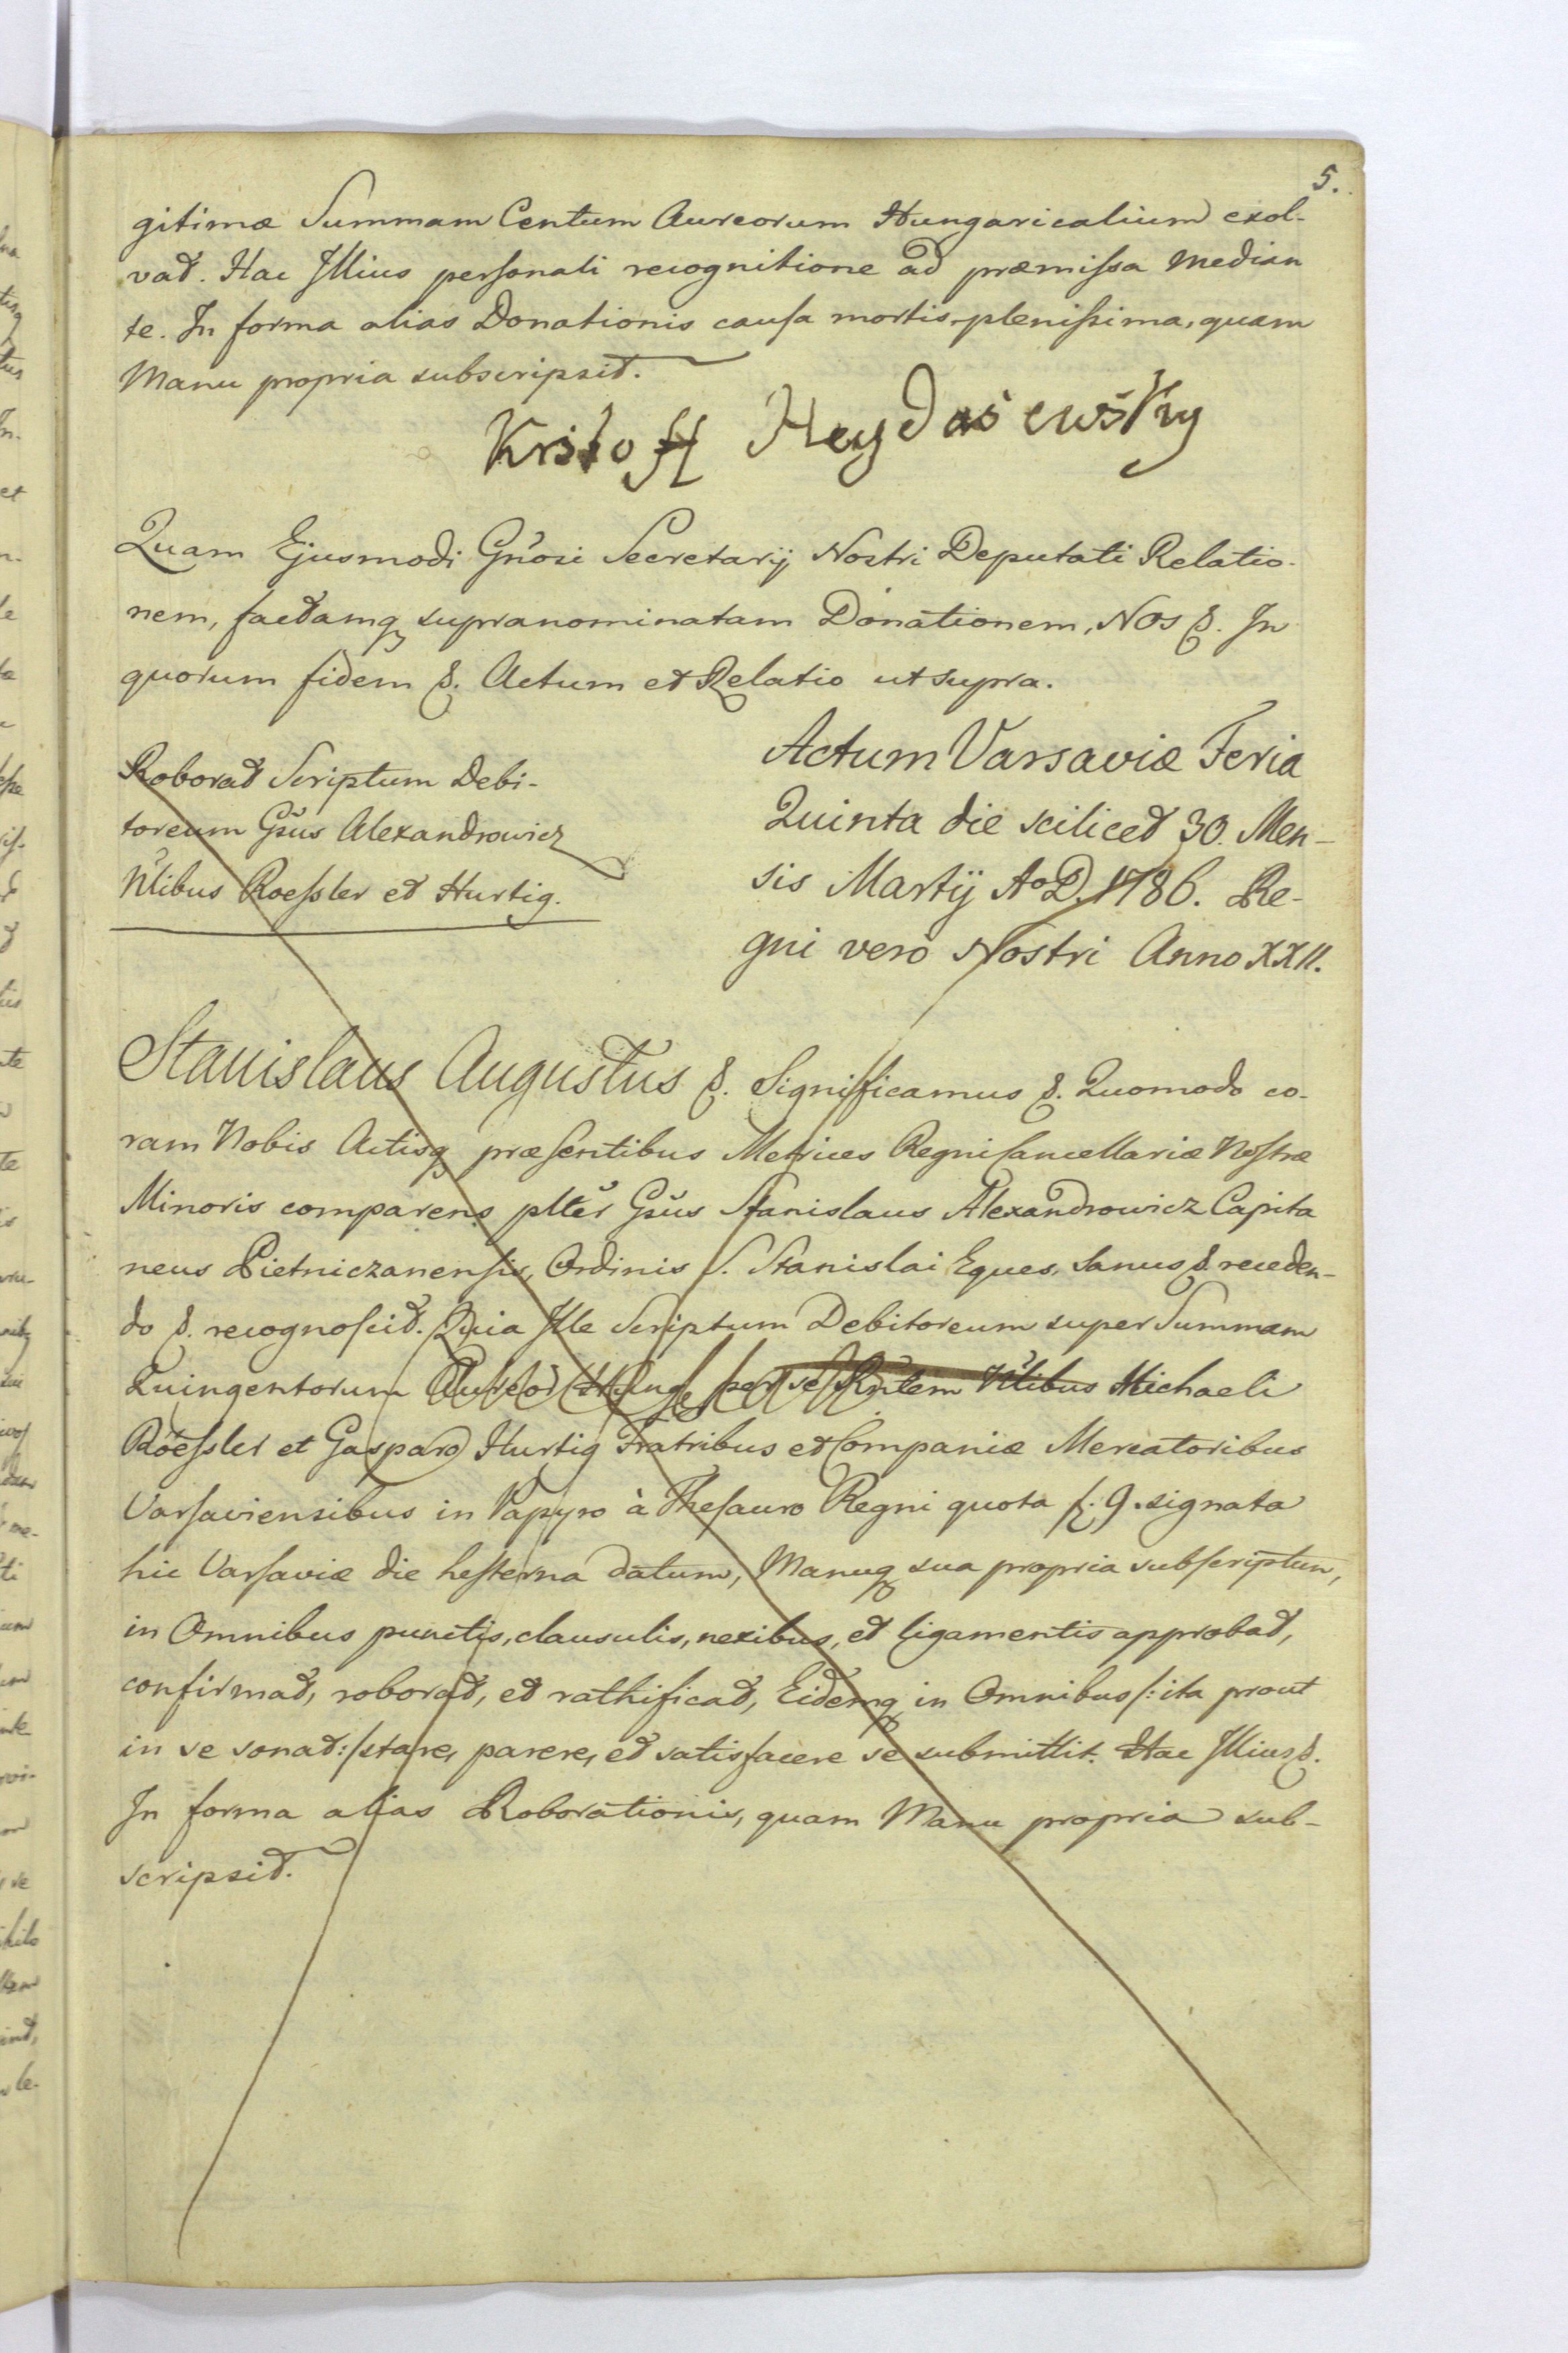 5.
gitimæ Summam Centum Aureorum Hungaricalium exol-
vat. Hac Illius personali recognitione ad præmissa median
te. In forma alias Donationis causa mortis plenissima, quam
Manu propria subscripsit.
Kristoff Heydasewsky
Quam Ejusmodi Gñosi Secretarij Nostri Deputati Relatio-
nem, factamq supranominatam Donationem, Nos &. In
quorum fidem &. Actum et Relatio ut supra.
Roborat Scriptum Debi-
toreum Gsus Alexandrowicz
Ntlibus Roessler et Hurtig.
Actum Varsaviæ Feria
Quinta die scilicet 30. Men-
sis Martij Ao D. 1786. Re-
gni vero Nostri Anno XXII.
Stanislaus Augustus &. Significamus &. Quomodo co-
ram Nobis Actisq præsentibus Metrices Regni Cancellariæ Nostræ
Minoris comparens plter Gsus Stanislaus Alexandrowicz Capita
neus Pietniczanensis, Ordinis S. Stanislai Eques, Sanus &. receden-
do &. recognoscit. Quia Ille Scriptum Debitoreum super Summam
Quingentorum per se Ntlibus Michaeli
Röessler et Gaspard Hurtig Fratribus et Companiæ Mercatoribus
Varsaviensibus in Papyro à Thesauro Regni quota f. 9. signata
hic Varsaviæ die hesterna datum, Manuq sua propria subscriptum,
in Omnibus punctis, clausulis, nexibus, et ligamentis approbat,
confirmat, roborat, et rathificat, Eidemq in Omnibus /: ita prout
in se sonat :/ stare, parere, et satisfacere se submittit. Hac Illius &.
In forma alias Roborationis, quam Manu propria sub-
scripsit.